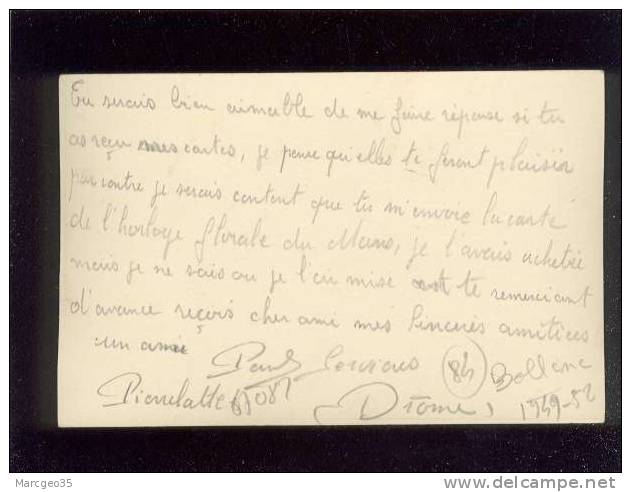 Tu serais bien aimable de me faire réponse si tu
as reçu mes cartes, je pense qu'elles te feront plaisir
par contre je serais content que tu m'envoie la carte
de l'horloge florale du Mans, je l'avais achetée
mais je ne sais ou je l'ai mise et te remerciant
d'avance reçois cher ami mes sincères amitiées
un ami Paul
84 Bollene
Pierrelatte Drome, 1949-52
Marcgeo35
www.delcampe.net